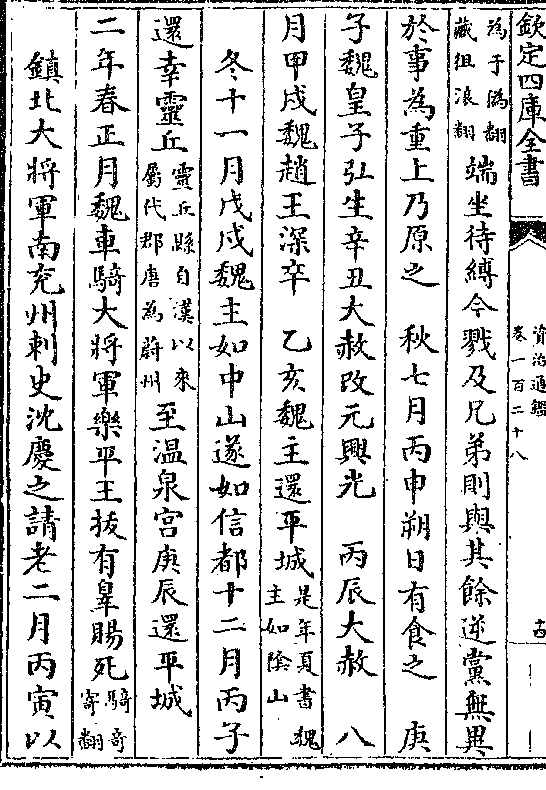 欽定四庫全書
資治通鑑
卷一百二十八
十四
為于偽翻
藏徂浪翻
端坐待縛今戮及兄弟則與其餘逆黨無異
於事為重上乃原之　秋七月丙申朔日有食之　庚
子魏皇子弘生辛丑大赦改元興光　丙辰大赦　八
月甲戌魏趙王深卒　乙亥魏主還平城是年夏書魏
主如陰山
冬十一月戊戌魏主如中山遂如信都十二月丙子
還幸靈丘靈丘縣自漢以來
屬代郡唐為蔚州
至温泉宫庚辰還平城
二年春正月魏車騎大將軍樂平王拔有辠賜死騎奇
寄翻
鎮北大將軍南兖州刺史沈慶之請老二月丙寅以